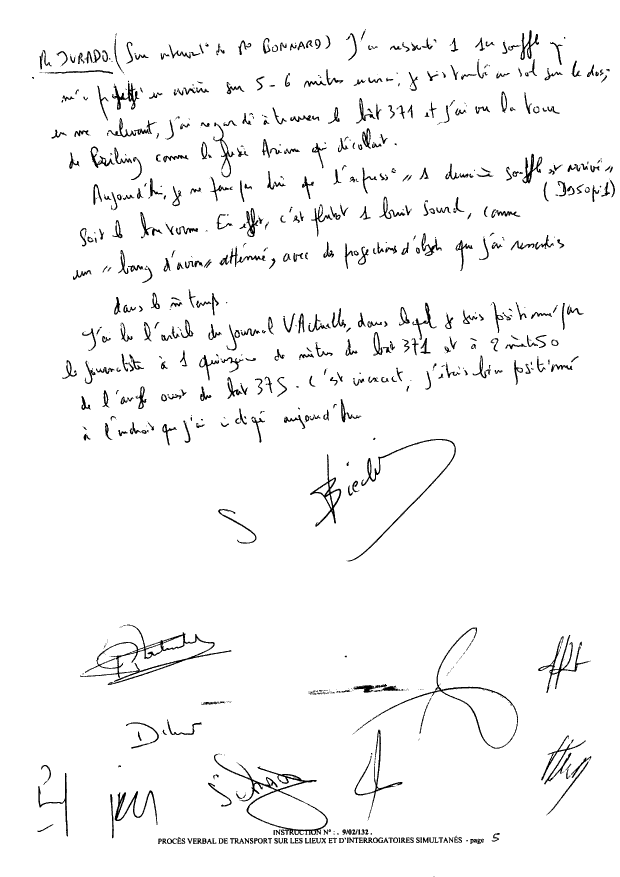 M. JURADO. (Sur interv° de Me BONNARD) J'ai ressenti 1 1er souffle qui
m'a projeté en arrière sur 5-6 mètres environ; je suis tombé au sol sur le dos;
en me relevant, j'ai regardé à travers le bât 371 et j'ai vu la tour
de Prilling comme la fusée Ariane qui décollait.
Aujourd'hui, je ne peux pas dire que l'express° " 1 deuxiè souffle est arrivé "
(D5501/1)
soit la bonne. En effet, c'est plutot 1 bruit sourd, comme
un " bang d'avion " atténué, avec des projections d'objets que j'ai ressenties
dans le m temps.
J'ai lu l'article du journal V.Actuelles, dans lequel je suis positionné par
le journaliste à 1 quinzaine de mètres du bat 371 et à 2 mètr50
de l'angle ouest du bat 375. C'est inexact, j'étais bien positionné
à l'endroit que j'ai indiqé aujourd'hui
INSTRUCTION N° : . 9/02/132 .
PROCÈS VERBAL DE TRANSPORT SUR LES LIEUX ET D'INTERROGATOIRES SIMULTANÉS - page 5